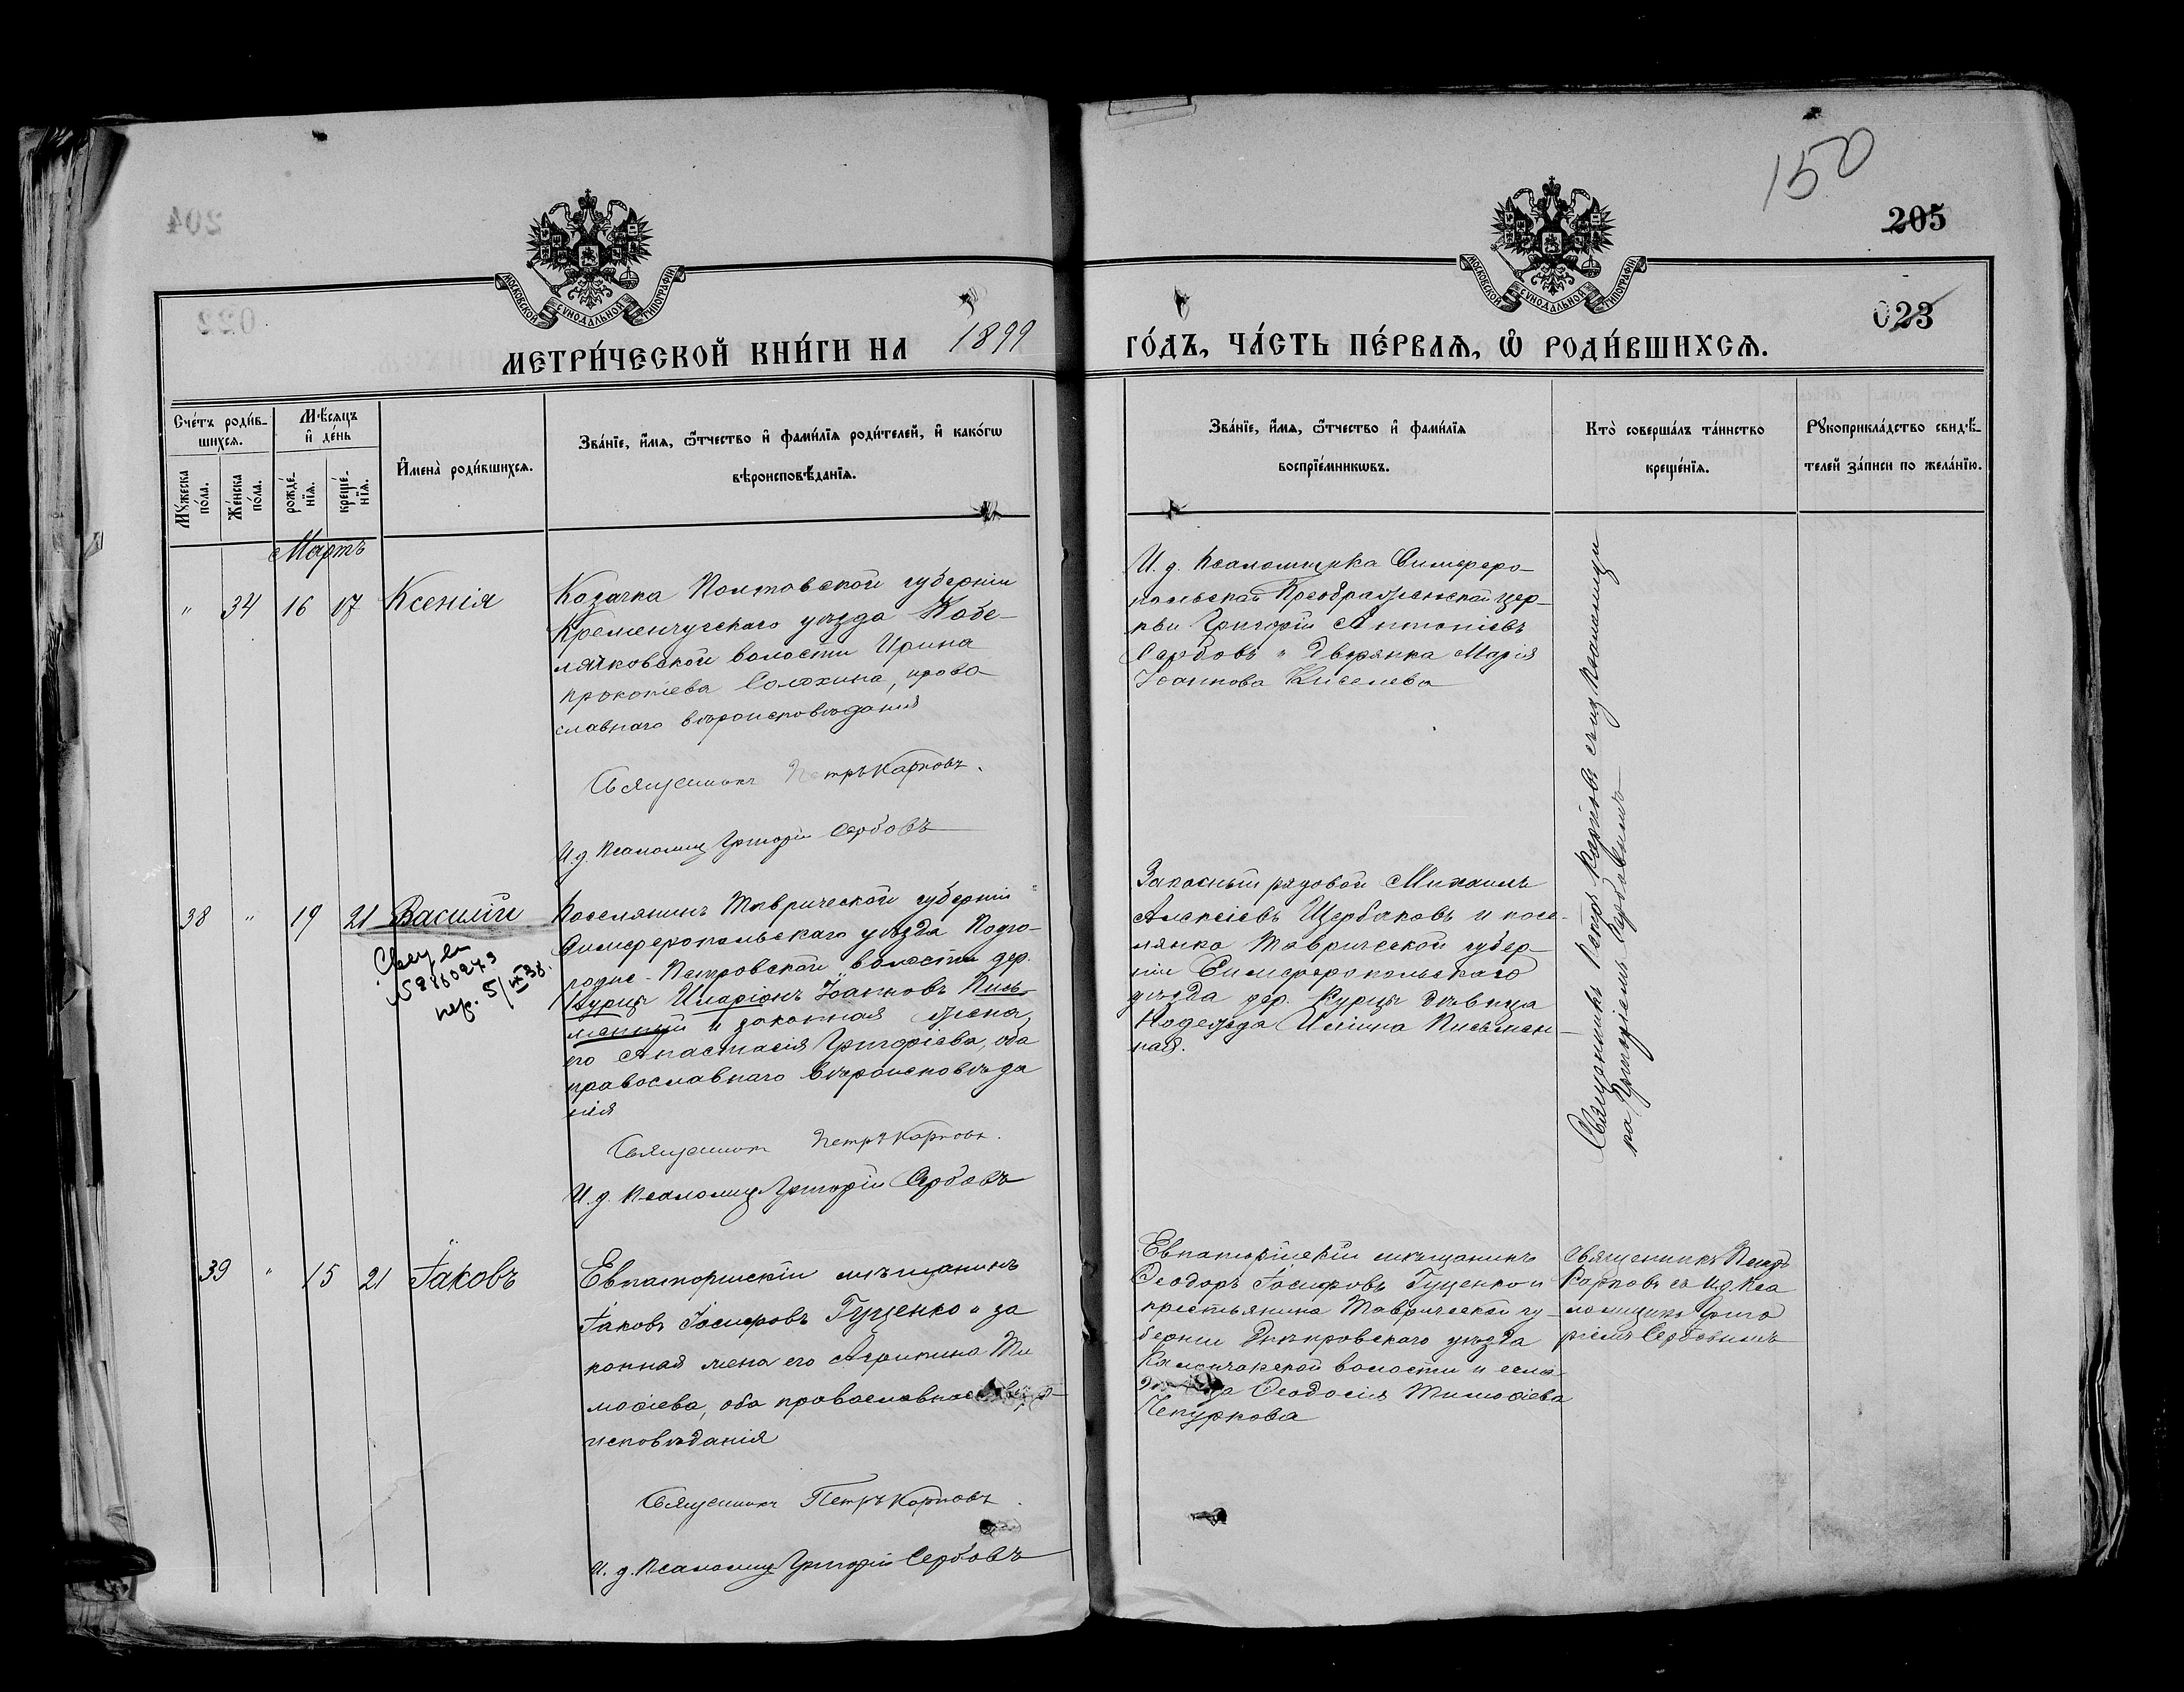 150
205
023
204
022
МОСКОВСКОЙ СУНОДАЛЬНОЙ ТИПОГРАФІИ
МОСКОВСКОЙ СУНОДАЛЬНОЙ ТИПОГРАФІИ
МЕТРИ́ЧЕСКОЙ КНИ́ГИ НА 1899
ГО́ДЪ, ЧА́СТЬ ПЕ́РВАѦ, Ѡ҆ РОДИ́ВШИХСѦ.
Сче́тъ роди́в-
шихсѧ.
Мꙋ́жеска
по́ла.
Же́нска
по́ла.
Мѣ́сѧцъ
и҆ де́нь
рожде́-
нїѧ.
креще́-
нїѧ.
И҆мена̀ роди́вшихсѧ.
Зва́нїе, и҆́мѧ, ѻ҆́тчество и҆ фами́лїѧ роди́телей, и҆ како́гѡ
вѣроисповѣ́данїѧ.
Зва́нїе, и҆́мѧ, ѻ҆́тчество и҆ фами́лїѧ
воспрїе́мникѡвъ.
Кто̀ соверша́лъ та́инство
креще́нїѧ.
Рꙋкоприкла́дство свидѣ́-
телей за́писи по жела́нїю.
Мартъ
" 34 16 17 Ксенія
Козачка Полтавской губерніи
Кременчугскаго уѣзда Кобе-
лячковской волости Ирина
Прокопіева Солохина, право-
славнаго вѣроисповѣданія
Священникъ Петръ Карповъ.
И. д. Псаломщ Григорій Сербовъ
И. д. Псаломщика Симферо-
польской Преображенской цер-
кви Григорій Антоніевъ
Сербовъ и дворянка Марія
Іоаннова Киселева
38 " 19 21 Василій
5/IX 38.
Поселянинъ Таврической губерніи
Симферопольскаго уѣзда Подго-
родне-Петровской волости дер.
Курцы Иларіонъ Іоанновъ Пись-
менный и законная жена
его Анастасія Григоріева, оба
православнаго вѣроисповѣда
нія
Священникъ Петръ Карповъ.
И. д. Псаломщ Григорій Сербовъ
Запасный рядовой Михаилъ
Алексіевъ Щербаковъ и посе-
лянка Таврической губер-
ніи Симферопольскаго
уѣзда дер. Курцы дѣвица
Надежда Иліина Письмен-
ная.
Священникъ Петръ Карповъ съ и д Псаломщи
ка Григоріемъ Сербовымъ
39 " 15 21 Іаковъ
Евпаторійскій мѣщанинъ
Іаковъ Іосифовъ Гуценко и за
конная жена его Агрипина Ти
моѳіева, оба православнаго
исповѣданія
Священникъ Петръ Карповъ.
И. д. Псаломщ Григорій Сербовъ
Евпаторійскій мѣщанинъ
Ѳеодоръ Іосифовъ Гуценко и
крестьянина Таврической гу-
берніи Днѣпровскаго уѣзда
Каланчакской волости и села
Ѳеодосія Тимоѳіева
Чепуркова
Священникъ Петръ
Карповъ съ И.д. Пса
ломщика Григо
ріемъ Сербовымъ